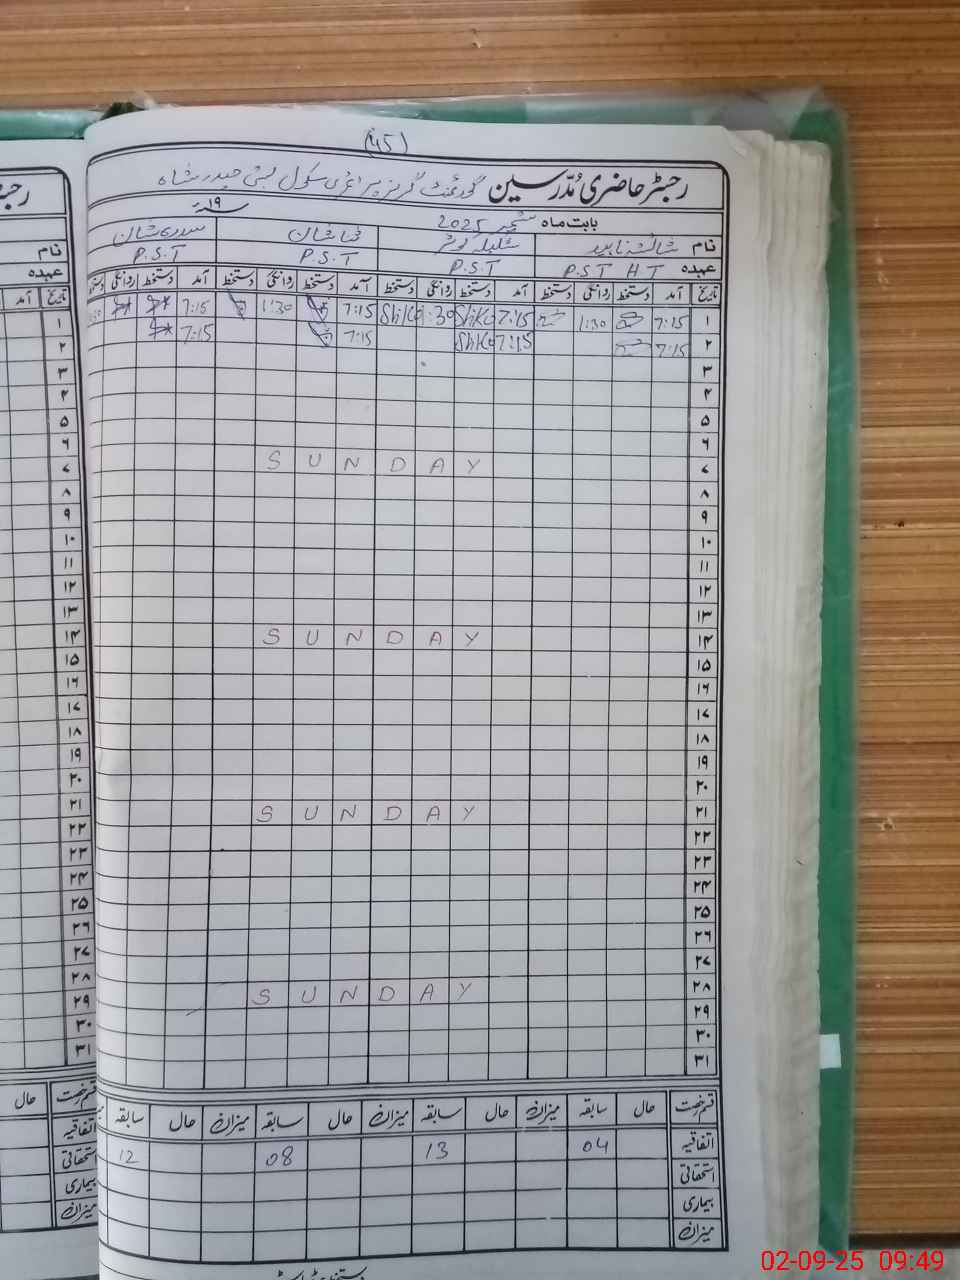 (45)
رجسٹر حاضری مُدرسین گورنمنٹ گرلز پرائمری سکول بستی حیدر شاہ
بابت ماہ ستمبر 2025 ۱۹ء
نام شائستہ ناہید شکیلہ کوثر
عہدہ P.S.T H T P.S.T P.S.T P.S.T
تاریخ آمد دستخط روانگی دستخط آمد دستخط روانگی دستخط آمد دستخط روانگی دستخط آمد دستخط روانگی دستخط
۱ 7:15 1:30 7:15 :30 7:15 1:30 7:15 :30
۲ 7:15 7:15 7:15 7:15
۳
۴
۵
۶
۷ SUNDAY
۸
۹
۱۰
۱۱
۱۲
۱۳
۱۴ SUNDAY
۱۵
۱۶
۱۷
۱۸
۱۹
۲۰
۲۱ SUNDAY
۲۲
۲۳
۲۴
۲۵
۲۶
۲۷
۲۸ SUNDAY
۲۹
۳۰
۳۱
قسم رخصت حال سابقہ میزان حال سابقہ میزان حال سابقہ میزان حال سابقہ
اتفاقیہ 04 13 08 12
استحقاقی
بیماری
میزان
نام
عہدہ
تاریخ آمد
۱
۲
۳
۴
۵
۶
۷
۸
۹
۱۰
۱۱
۱۲
۱۳
۱۴
۱۵
۱۶
۱۷
۱۸
۱۹
۲۰
۲۱
۲۲
۲۳
۲۴
۲۵
۲۶
۲۷
۲۸
۲۹
۳۰
۳۱
قسم رخصت حال
اتفاقیہ
استحقاقی
بیماری
میزان
02-09-25 09:49